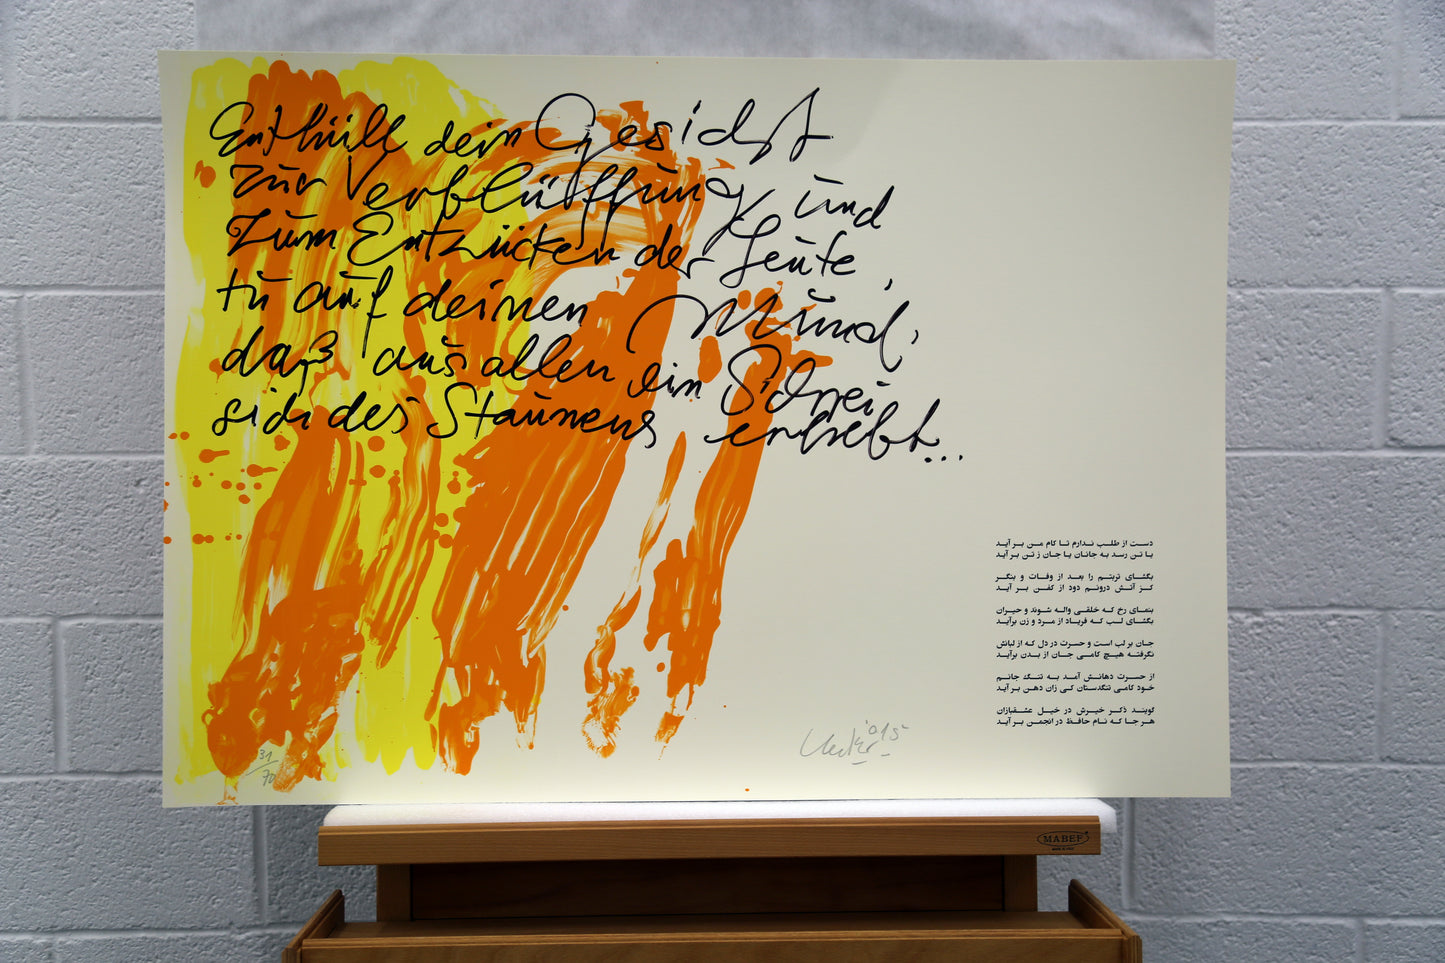 Enthüll dein Gesicht
zur Verblüffung und
zum Entzücken der Leute,
tu auf deinen Mund,
daß aus allen ein Schrei
sich des Staunens erhebt...
دست از طلب ندارم تا کام من بر آید
یا تن رسد به جانان یا جان ز تن بر آید
بگشای تربتم را بعد از وفات و بنگر
کز آتش درونم دود از کفن بر آید
بنمای رخ که خلقی واله شوند و حیران
بگشای لب که فریاد از مرد و زن برآید
جان بر لب است و حسرت در دل که از لبانش
نگرفته هیچ کامی جان از بدن برآید
از حسرت دهانش آمد به تنگ جانم
خود کامی تنگدستان کی زان دهن بر آید
گویند ذکر خیرش در خیل عشقبازان
هر جا که نام حافظ در انجمن بر آید
31/70
Uecker '015
MABEF